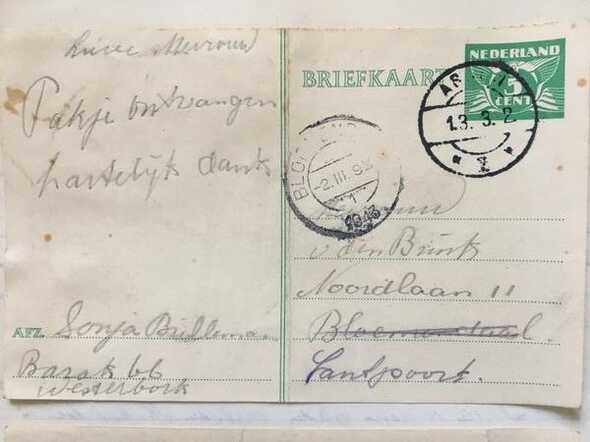 Lieve Mevrouw
Pakje ontvangen
hartelijk dank
AFZ. Sonja Bullema.
Barak 66
Westerbork
BRIEFKAART
NEDERLAND
5
CENT
AS
13.3.2
BLO
-2.III.
1
1943
v den Brink
Noordlaan 11
Bloemendaal.
Santpoort.